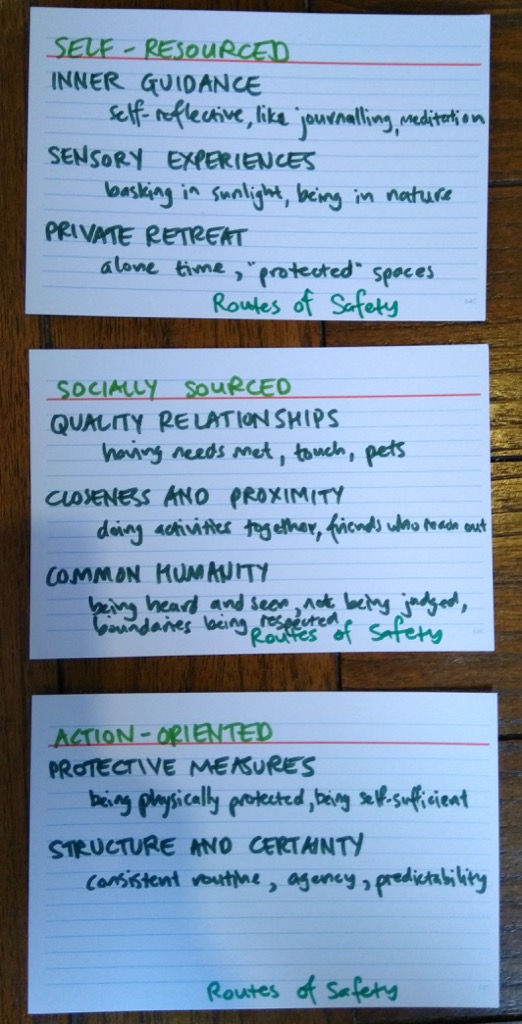 SELF-RESOURCED
INNER GUIDANCE
self-reflective, like journalling, meditation
SENSORY EXPERIENCES
basking in sunlight, being in nature
PRIVATE RETREAT
alone time, "protected" spaces
Routes of Safety
SOCIALLY SOURCED
QUALITY RELATIONSHIPS
having needs met, touch, pets
CLOSENESS AND PROXIMITY
doing activities together, friends who reach out
COMMON HUMANITY
being heard and seen, not being judged,
boundaries being respected
Routes of Safety
ACTION-ORIENTED
PROTECTIVE MEASURES
being physically protected, being self-sufficient
STRUCTURE AND CERTAINTY
consistent routine, agency, predictability
Routes of Safety